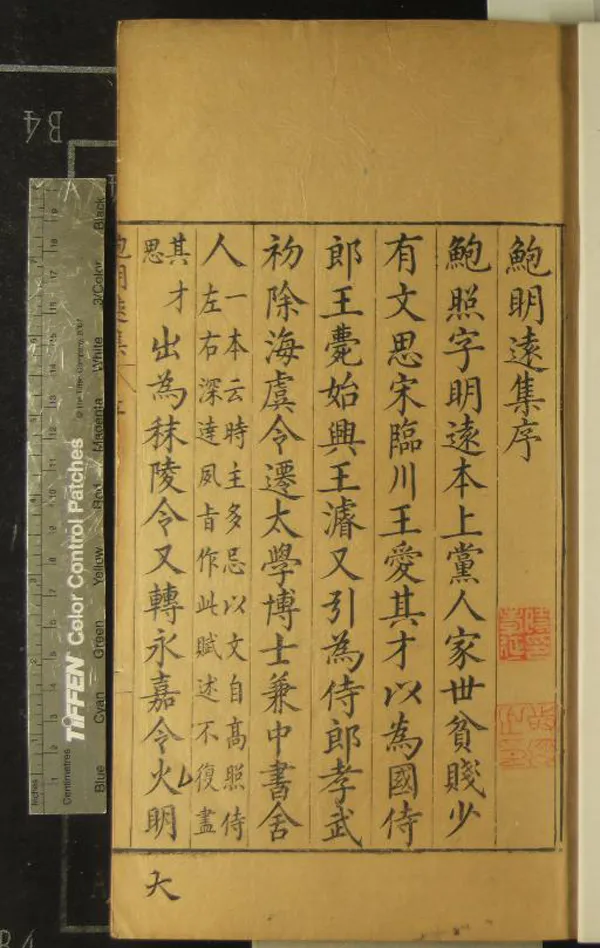 鮑明遠集序
鮑照字明遠本上黨人家世貧賤少
有文思宋臨川王愛其才以為國侍
郎王薨始興王濬又引為侍郎孝武
初除海虞令遷太學博士兼中書舍
人一本云時主多忌以文自高照侍
左右深達風旨作此賦述不復盡
其才
思
出為秣陵令又轉永嘉令火明
大
鮑明遠集
B4
TIFFEN Color Control Patches
© The Tiffen Company, 2007
Inches
Centimetres
Blue
Cyan
Green
Yellow
Red
Magenta
White
3/Color
Black
B4